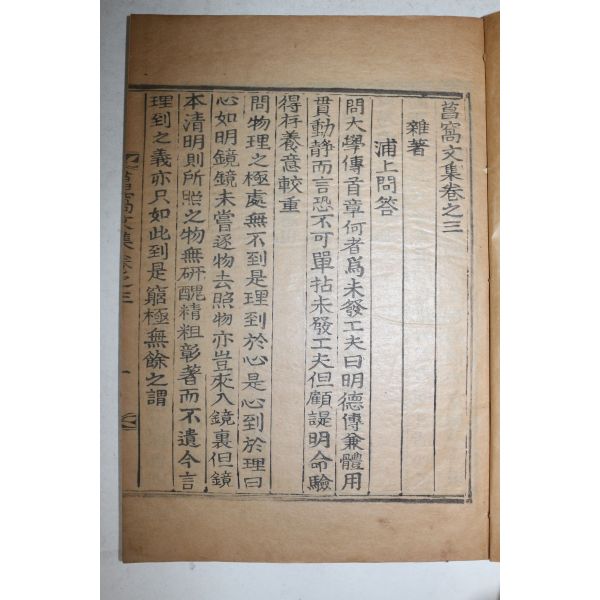 菖窩文集卷之三
雜著
浦上問答
問大學傳首章何者爲未發工夫曰明德傳兼體用
貫動靜而言恐不可單拈未發工夫但顧諟明命驗
得存養意較重
問物理之極處無不到是理到於心是心到於理曰
心如明鏡鏡未嘗逐物去照物亦豈來入鏡裏但鏡
本清明則所照之物無硏醜精粗彰著而不遺今言
理到之義亦只如此到是窮極無餘之謂
菖窩文集卷之三
一